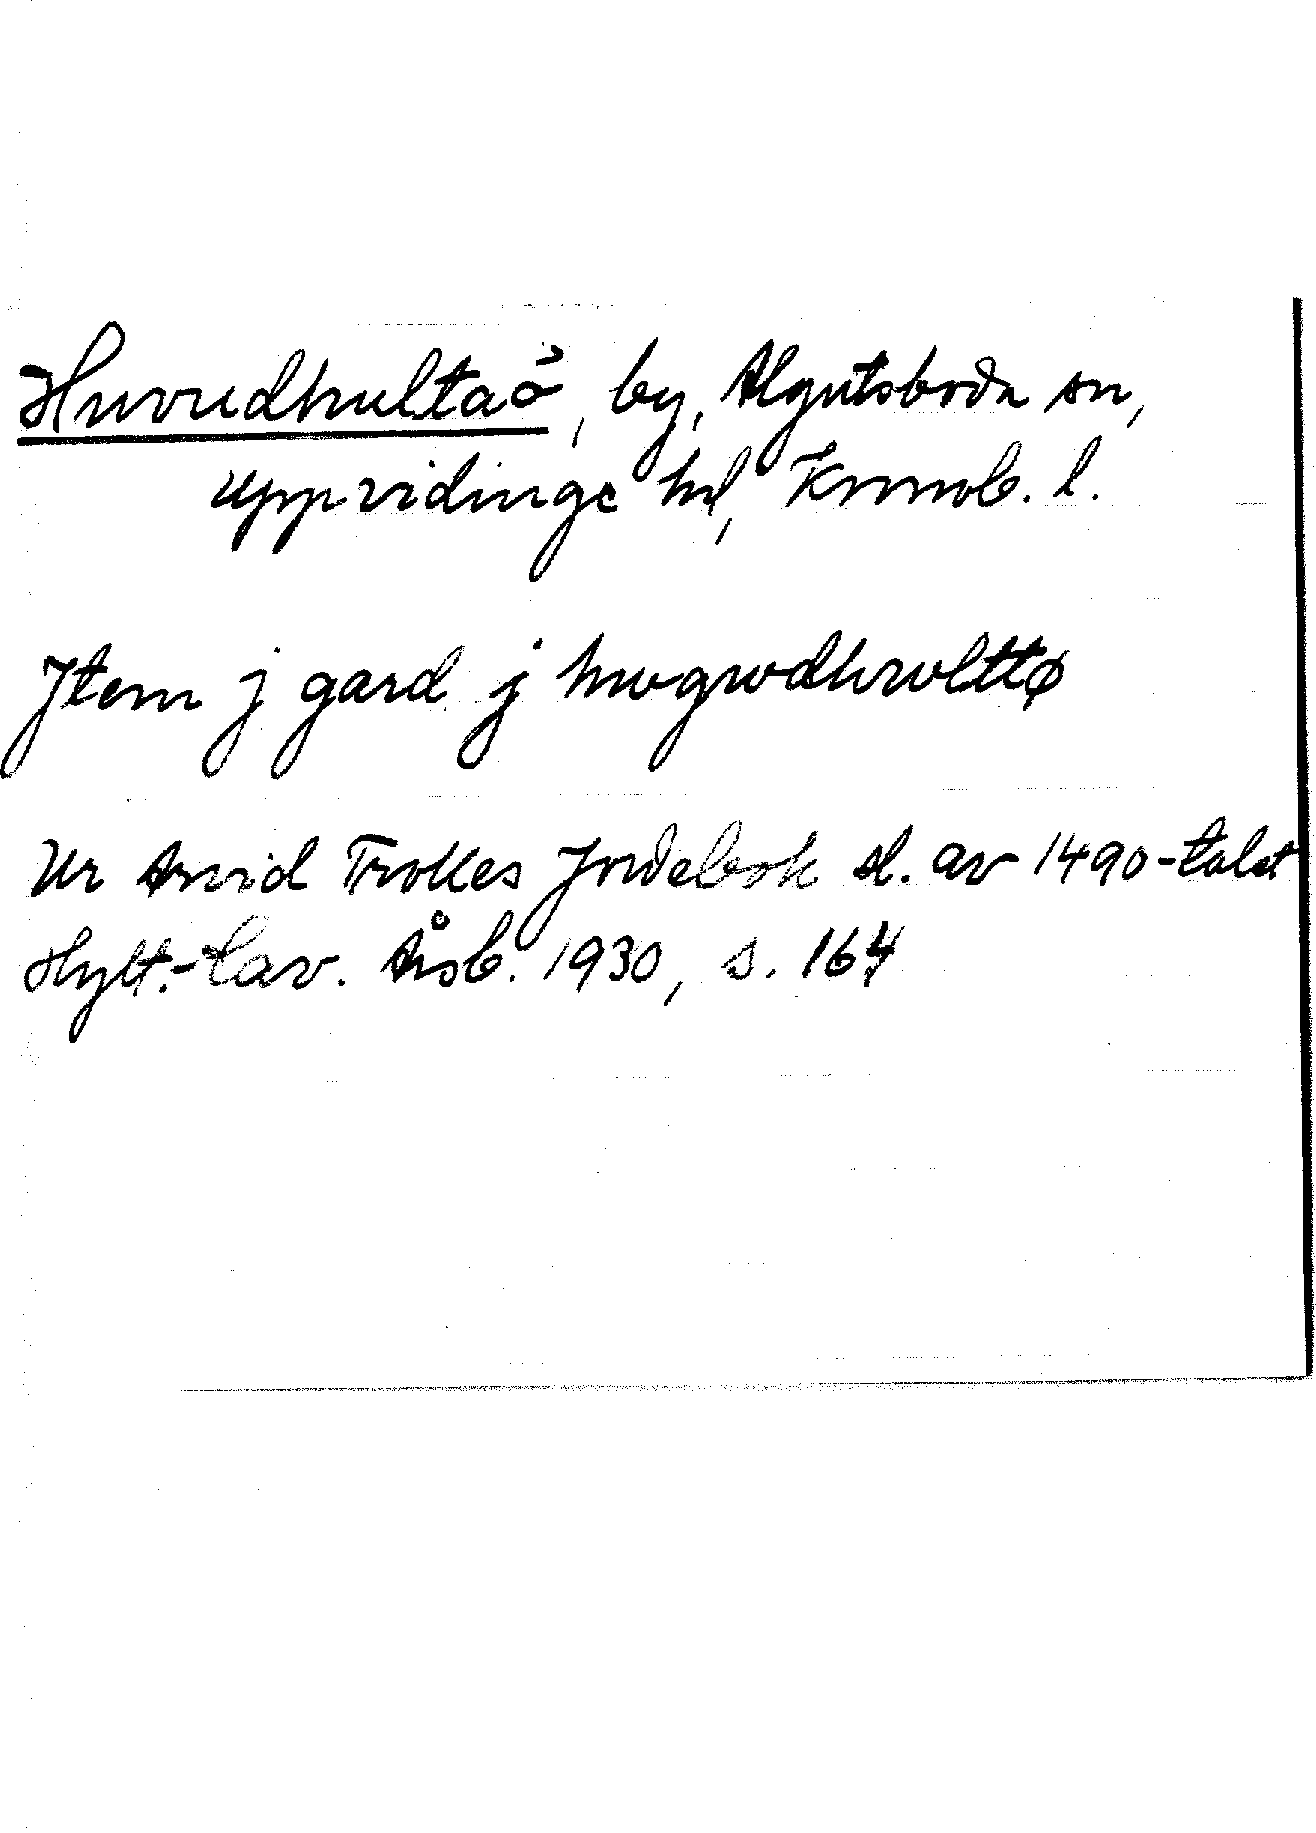 Huvudhultaö, by, Algutsboda sn,
Uppvidinge hd, Kronob. l.
Jtem j gard j hwgwdhwlttø
Ur Arvid Trolles Jordebok sl. av 1490-talet
Hylt.-Cav. Årsb. 1930, s. 164